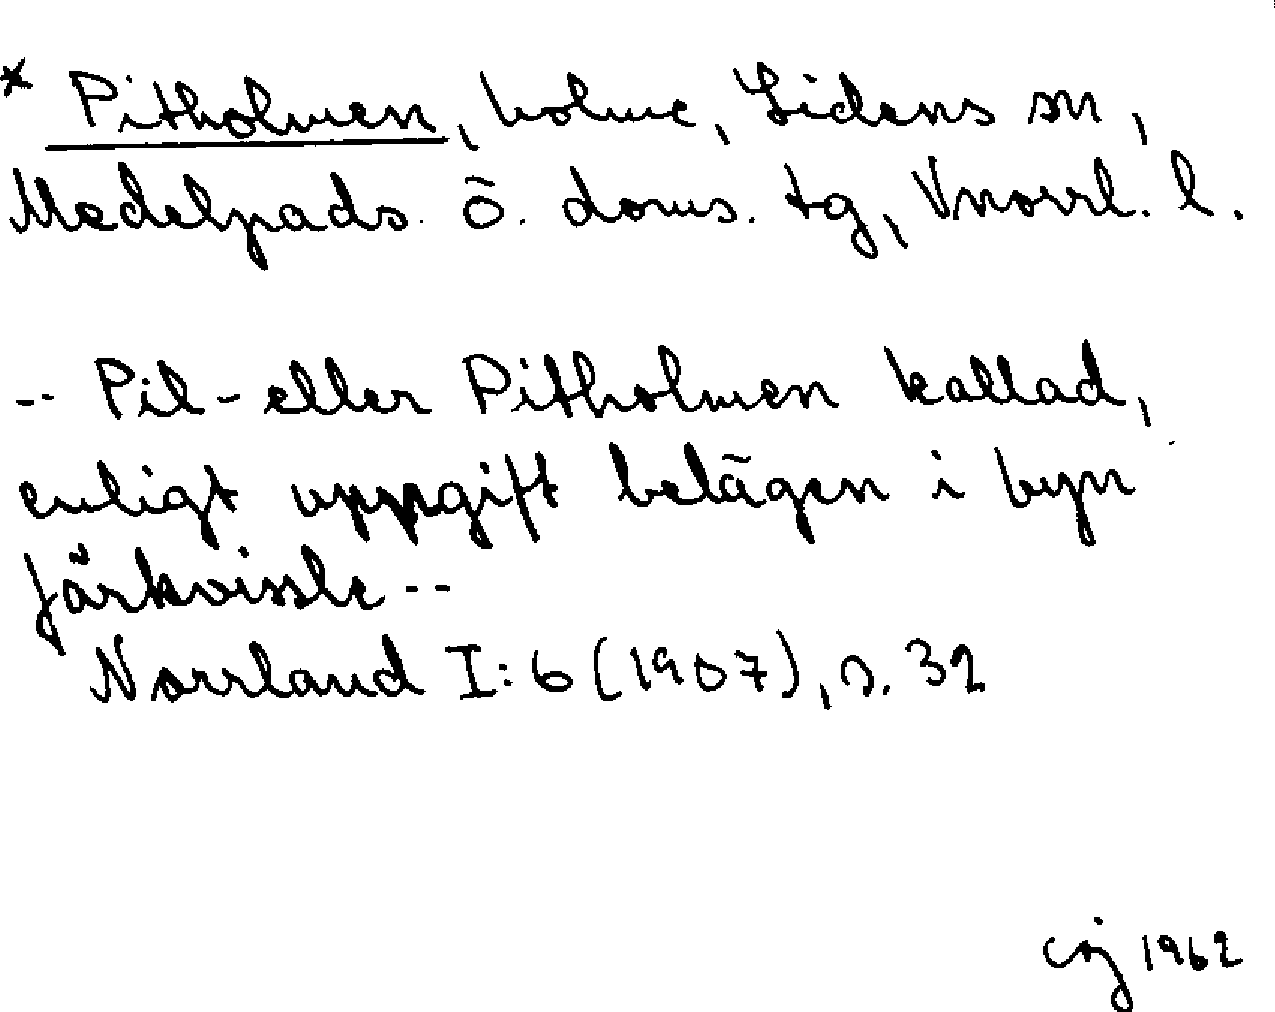 * Pitholmen, holme, Lidens sn,
Medelpads ö. doms. tg, Vnorrl. l.
-- Pil- eller Pitholmen kallad,
enligt uppgift belägen i byn
Järkvissle --
Norrland I:6 (1907), s. 32
1962